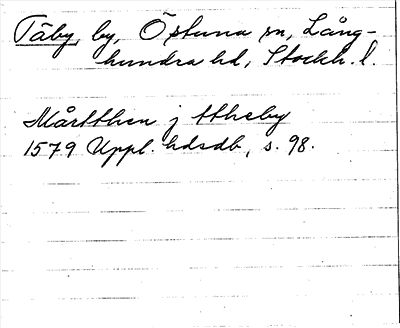 Täby, by, Östuna sn, Lång-
hundra hd, Stockh. l.
Mårtthen j ttheby
1579 Uppl. hdsdb, s. 98.